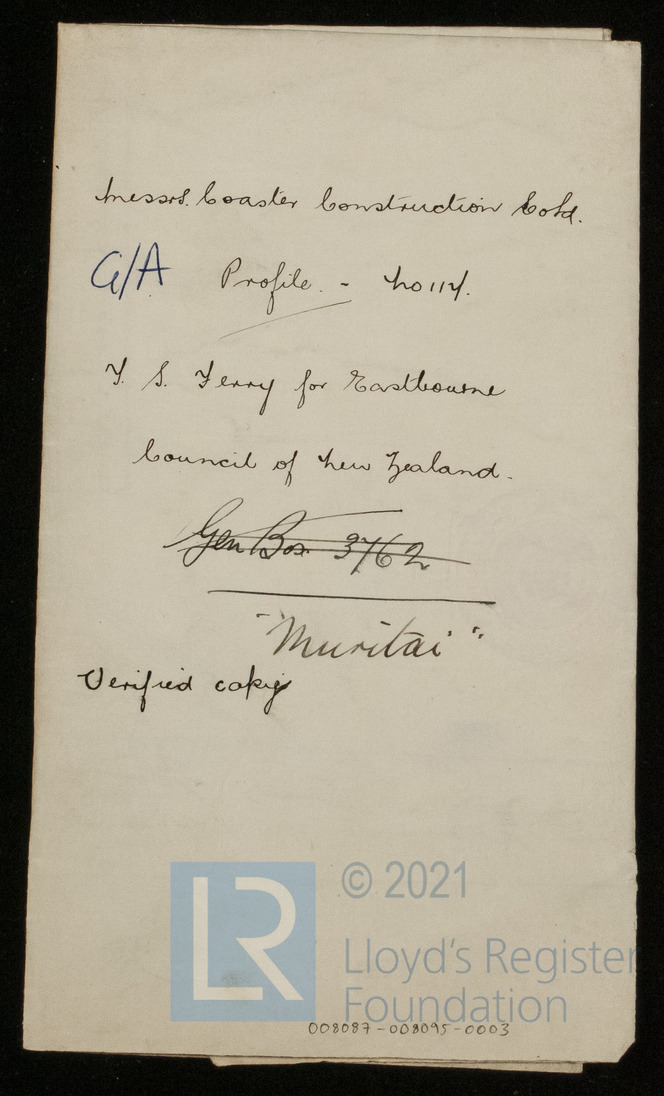 Messrs. Coaster Construction Co Ld.
G/A Profile. - No 114.
T. S. Ferry for Eastbourne
Council of New Zealand.
Gen Box 3762
"Muritai"
Verified copy
LR
© 2021
Lloyd's Register
Foundation
008087-008095-0003